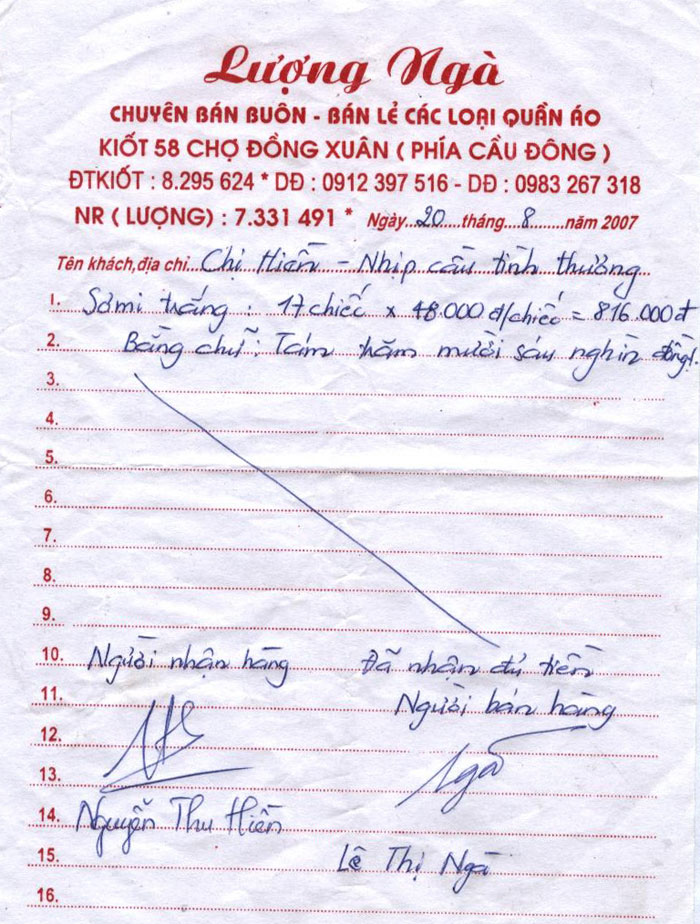 Lượng Ngà
CHUYÊN BÁN BUÔN - BÁN LẺ CÁC LOẠI QUẦN ÁO
KIỐT 58 CHỢ ĐỒNG XUÂN ( PHÍA CẦU ĐÔNG )
ĐTKIỐT : 8.295 624 * DĐ : 0912 397 516 - DĐ : 0983 267 318
NR ( LƯỢNG) : 7.331 491 * Ngày 20 tháng 8 năm 2007
Tên khách, địa chỉ Chị Hiền - Nhịp cầu tình thương
1. Sơ mi trắng : 17 chiếc x 48.000 đ/chiếc = 816.000 đ
2. Bằng chữ : Tám trăm mười sáu nghìn đồng!.
3.
4.
5.
6.
7.
8.
9.
10. Người nhận hàng Đã nhận đủ tiền
11. Người bán hàng
12.
13. Ngà
14. Nguyễn Thu Hiền
15. Lê Thị Ngà
16.